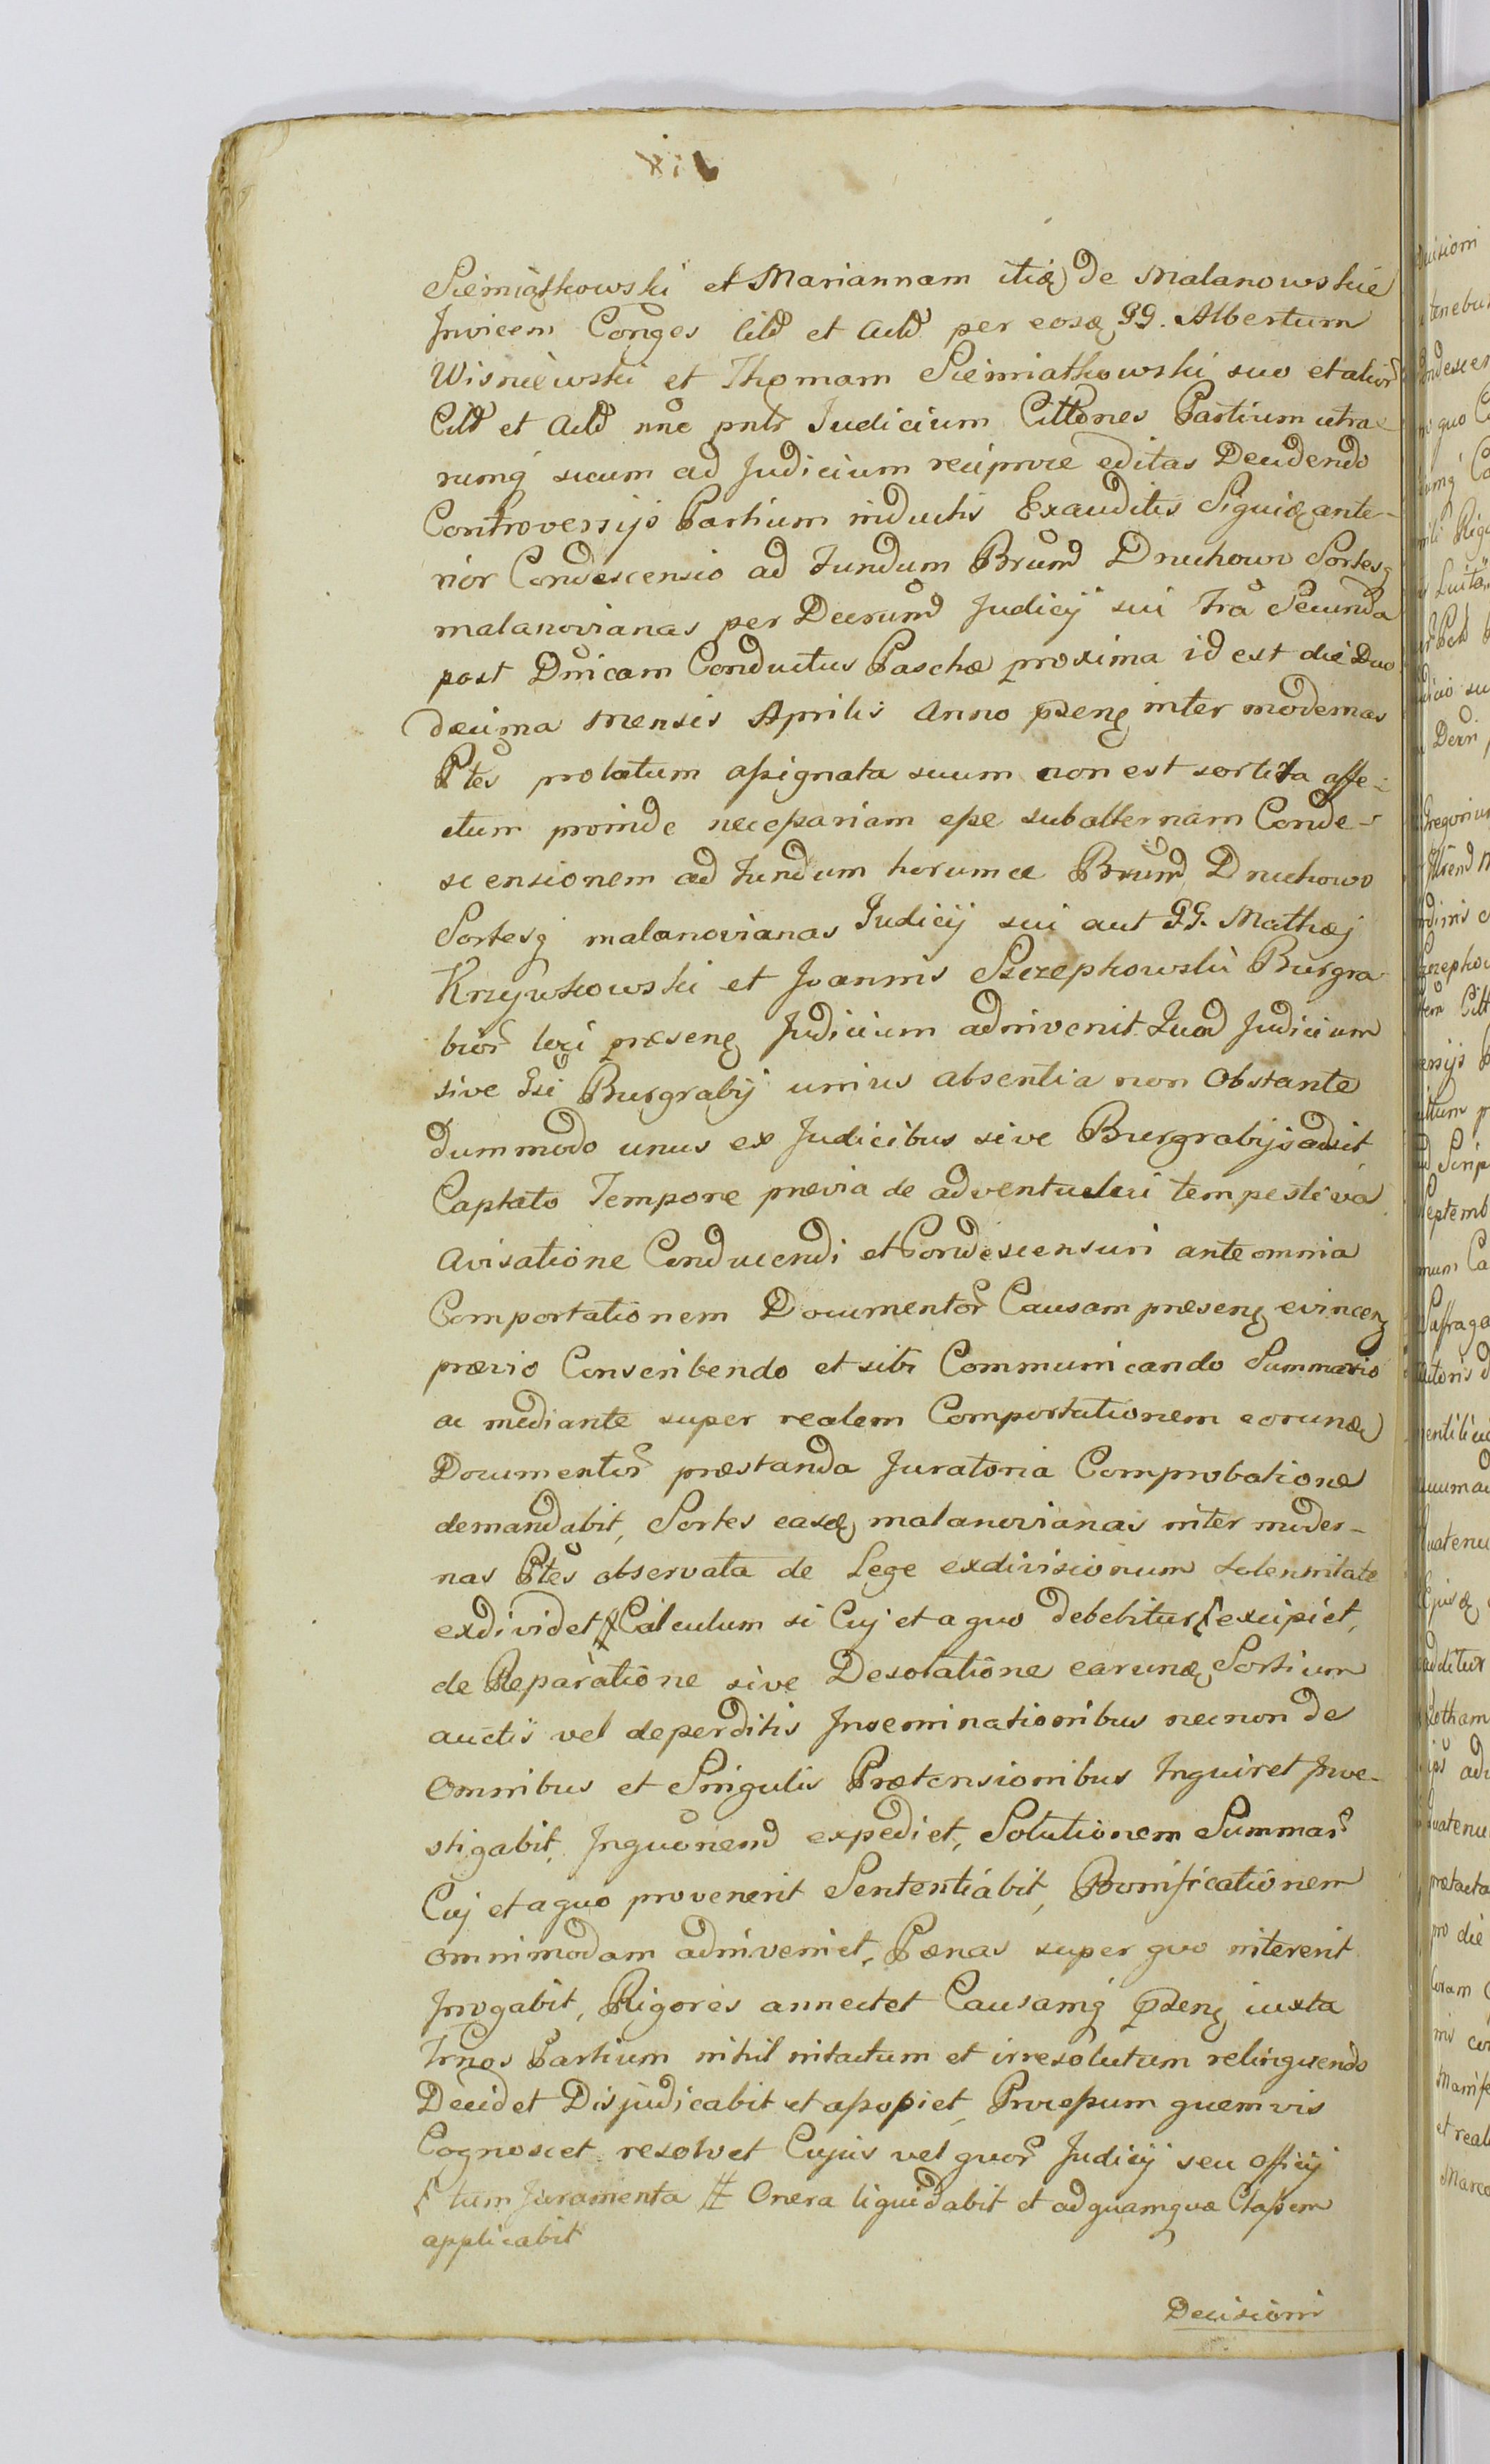 Siemiątkowski et Mariannam itiq de Malanowskie
Invicem Conges Citd et Actd per eosq GG. Albertum
Wisniewski et Thomam Siemiatkowski suo et alior
Citd et Actd nnc pntr Judicium Cittones Partium utra-
rumq sicum ad Judicium reciproce editas Decidendo
Controversijs Partium inductis Exauditis Siquidq ante-
rior Condescensio ad Fundum Brumd Druchowo Sortesq
malanovianas per Decrumd Judicij sui Fra Secunda
post Dnicam Conductus Paschæ proxima id est die Duo
decima Mensis Aprilis Anno præsenq inter modernas
Ptes prolatum assignata suum non est sortita affe-
ctum proinde necessariam esse subalternam Conde-
scensionem ad Fundum horumce Brumd Druchowo
Sortesq malanovianas Judicij sui aut GG. Mathæj
Krzywkowski et Joannis Szczepkowski Burgra
bior loci præsenq Judicium adinvenit Quod Judicium
sive Gsi Burgrabij unius absentia non Obstante
dummodo unus ex Judicibus sive Burgrabijs adsit
Captato Tempore prævia de adventu sui tempestiva
Avisatione Conducendi et Condescensuri ante omnia
Comportationem Documentor Causam præsenq evincenq
prævio Conscribendo et sibi Communicando Summario
ac mediante super realem Comportationem eorundq
Documentor præstanda Juratoria Comprobatione
demandabit, Sortes easdq malanovianas inter moder-
nas Ptes observata de Lege exdivisionum Solennitate
exdividet # Calculum si Cuj et a quo debebitur excipiet,
de Reparatione sive Desolatione earundq Sortium
auctis vel deperditis Inseminationibus necnon de
Omnibus et Singulis Prætensionibus Inquiret Inve-
stigabit, Inquonemd expediet, Solutionem Summar
Cuj et a quo provenerit Sententiabit, Bonificationem
omnimodam adinveniet, Pœnas super quo intererit
Irrogabit, Rigores annectet Causamq præsenq iuxta
Trnos Partium nihil intactum et irresolutum relinquendo
Decidet Disjudicabit et assopiet, Processum quemvis
Cognoscet resolvet Cujus vel quor Judicij seu Officij
tum Juramenta # Onera liquidabit et ad quamquæ Classem
applicabit
Decisioni